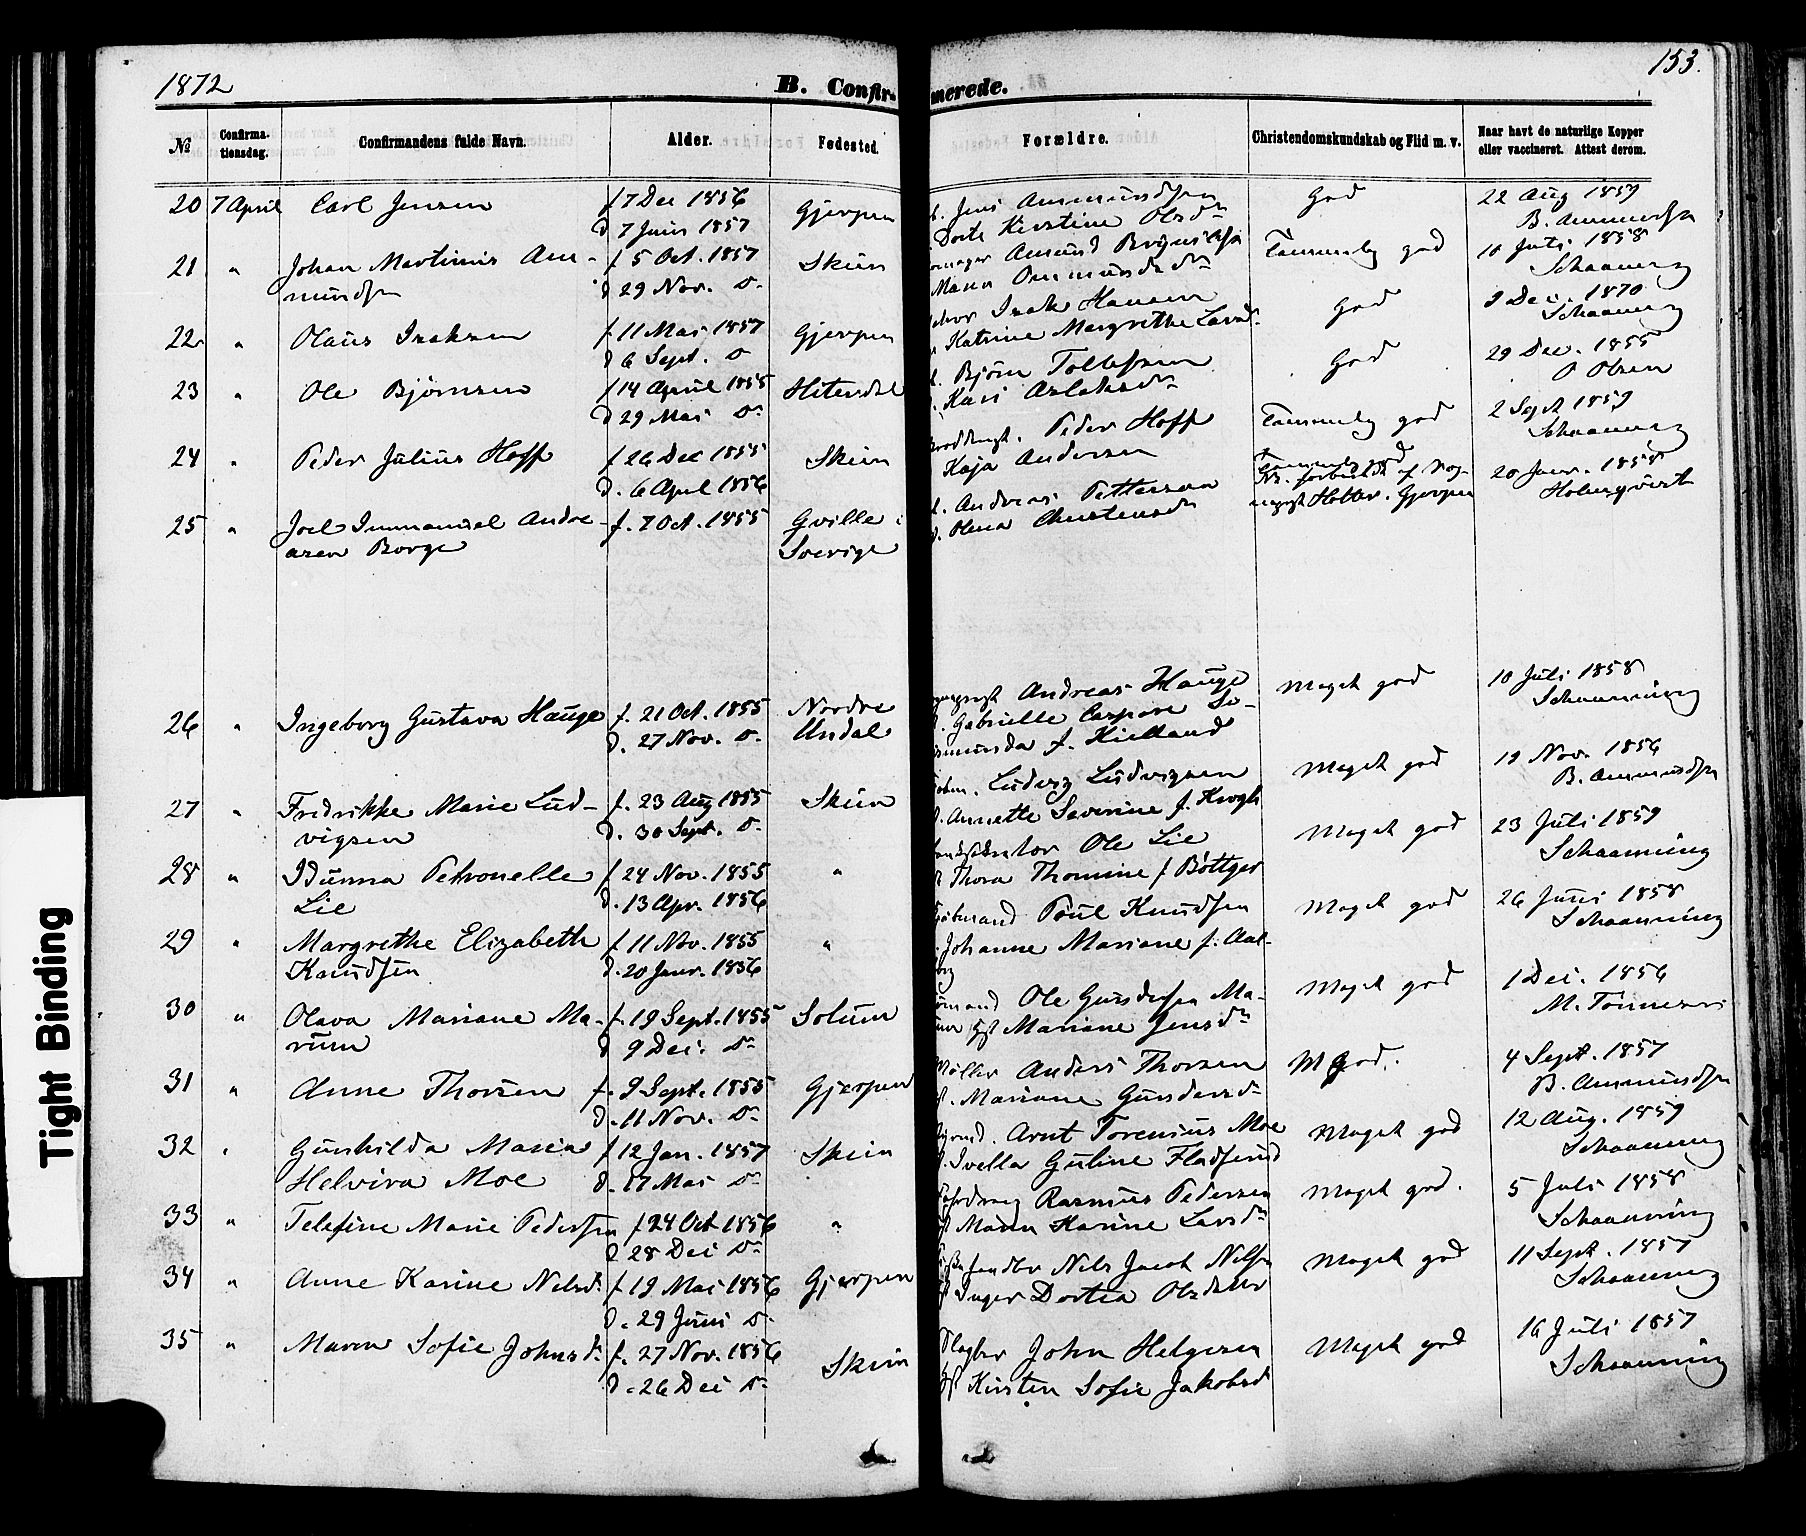 1872
B. Confir-
merede.
153.
№
Confirma-
tionsdag.
Confirmandens fulde Navn.
Alder.
Fødested.
Forældre.
Christendomskundskab og Flid m. v.
Naar havt de naturlige Kopper
eller vaccineret. Attest derom.
20 7 April Carl Jensen f 7 Dec 1856 Gjerpen Jens Ammundsen God 22 Aug 1859
d 7 Juni 1857 Dorte Kirstine Olsdr B. Ammundsen
21 " Johan Martinus Am- f 5 Oct. 1857 Skien Amund Temmelig god 10 Juli 1858
mundsen d 29 Nov. do Maria Ommundsdr Schaanning
22 " Olaus Isaksen f 11 Mai 1857 Gjerpen Isak Hansen God 9 Dec. 1870
d 6 Sept. do Katrine Margrethe Larsd. Schaanning
23 " Ole Bjørnsen f 14 April 1855 Hiterdal Bjørn Tollefsen God 29 Dec. 1855
d 29 Mai do Kari Aslaksdr O Olsen
24 " Peder Julius Hoff f 26 Dec 1855 Skien Peder Hoff Temmelig god 2 Sept 1859
d. 6 April 1856 Kaja Andersen Schaanning
25 " Joel Immanuel Andre- f. 7 Oct. 1855 Gville i Andreas Petterson Temmelig god 20 Janr. 1858
asen Borge Sverige Olena Christensdr forbedt af Sog-
Gjerpen Holmqvist
26 " Ingeborg Gustava Hauge f. 21 Oct. 1855 Nordre Andreas Hauge Meget god 10 Juli 1858
d. 27 Nov. do Undal Gabrielle Caspare Se- Schaanning
f. Kielland
27 " Fredrikke Marie Lud- f. 23 Aug 1855 Skien Ludvig Ludvigsen Meget god 19 Nov. 1856
vigsen d. 30 Sept. do Annette Severine f. Krogh B. Ammundsen
28 " Idunna Petronelle f 24 Nov. 1855 " Ole Lie Meget god 23 Juli 1859
Lie d. 13 Apr. 1856 Thora Thomine f Bøttger Schaanning
29 " Margrethe Elizabeth f 11 Nov. 1855 " Poul Knudsen Meget god 26 Juni 1858
Knudsen d. 20 Janr. 1856 Johanne Mariane f. Aal- Schaanning
borg
30 " Olava Mariane Ma- f. 19 Sept. 1855 Solum Ole Gundersen Ma- Meget god 1 Dec. 1856
rum d 9 Dec. do Mariane Jensdr M. Tønnesen
31 " Anne Thorsen f. 9 Sept. 1855 Gjerpen Møller Anders Thorsen M god. 4 Sept. 1857
d. 11 Nov. do Mariane Gundersdr B. Ammundsen
32 " Gunhilda Maria f 12 Jan. 1857 Skien Arnt Torenius Moe Meget god 12 Aug. 1859
Helvira Moe d. 17 Mai do Guline Schaanning
33 " Telefine Marie Pedersen f 24 Oct 1856 " Rasmus Pedersen Meget god. 5 Juli 1858
d 28 Dec do Maria Karine Larsdr Schaanning
34 " Anne Karine Nilsdr. f 19 Mai 1856 Gjerpen Nils Jacob Nilsen Meget god 11 Sept. 1857
d. 29 Juni do Inger Dortea Olsdatter Schaanning
35 " Maren Sofie Johnsdr. f. 27 Nov. 1856 Skien Slagter John Helgesen Meget god 16 Juli 1857
d. 26 Dec do Kirsten Sofie Jakobsd Schaanning
Tight Binding